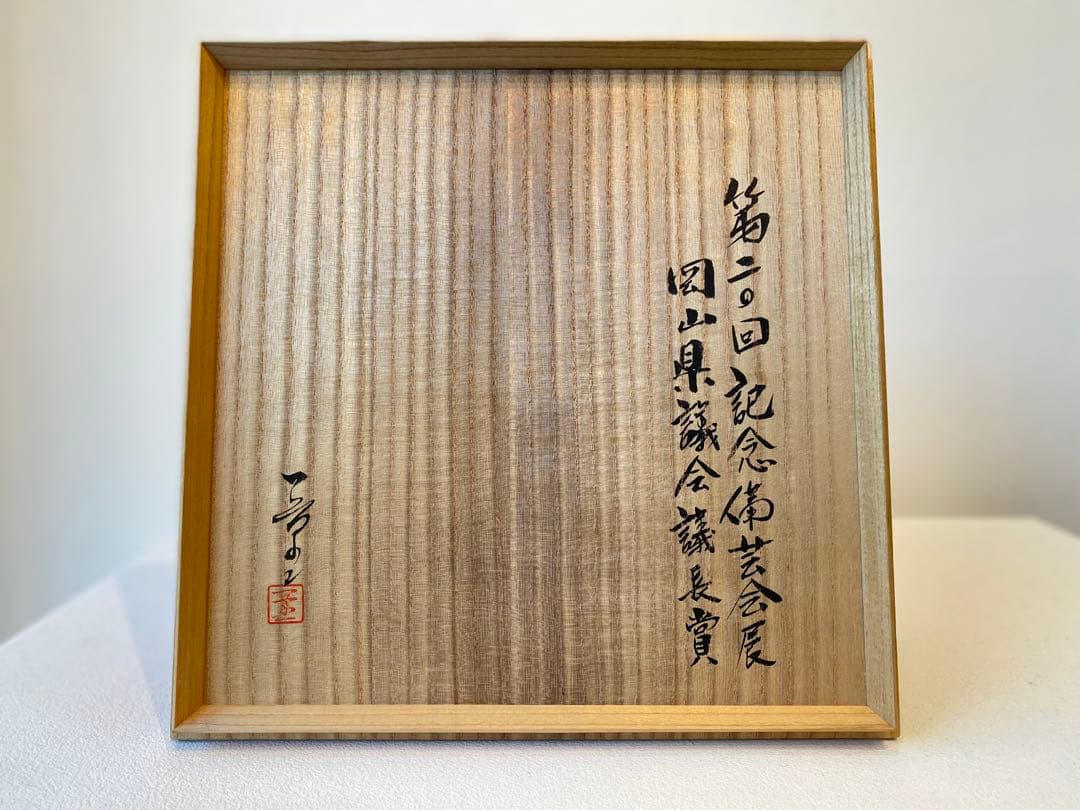 第二〇回記念備芸会展
岡山県議会議長賞